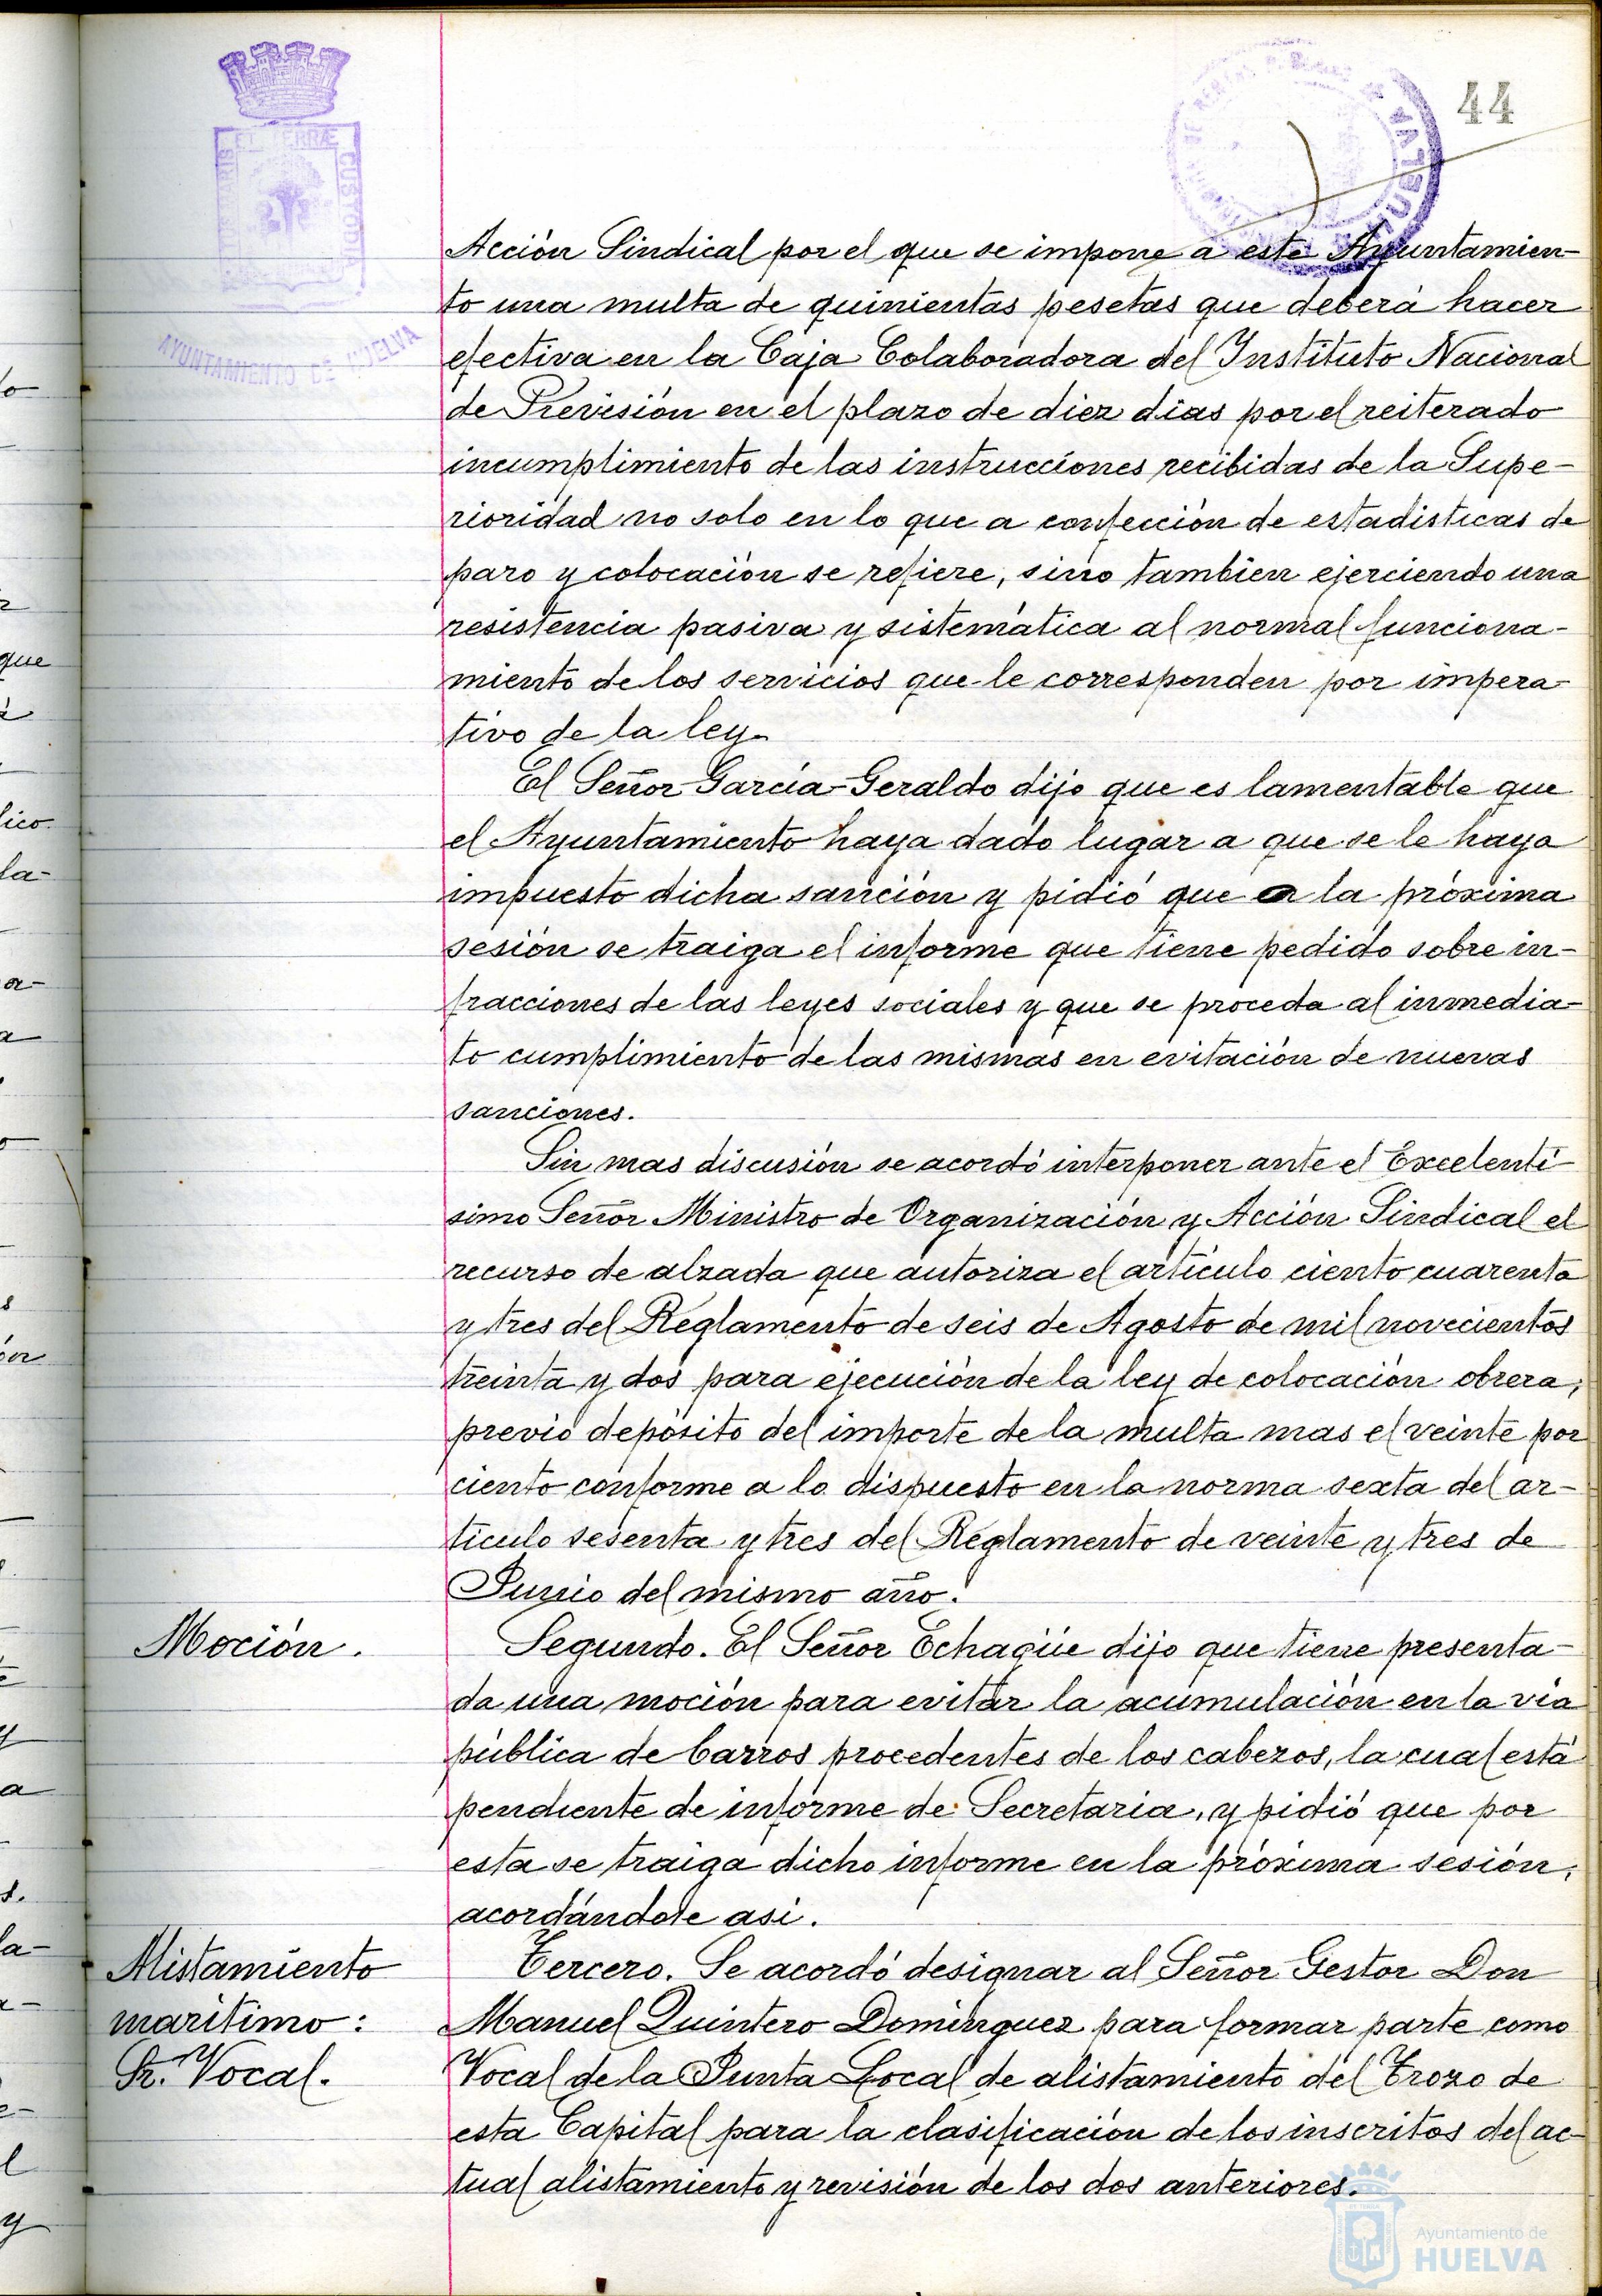 44
PORTUS MARIS ET TERRÆ CUSTODIA
AYUNTAMIENTO DE HUELVA
HUELVA
Acción Sindical por el que se impone a este Ayuntamien-
to una multa de quinientas pesetas que deberá hacer
efectiva en la Caja Colaboradora del Instituto Nacional
de Previsión en el plazo de diez dias por el reiterado
incumplimiento de las instrucciones recibidas de la Supe-
rioridad no solo en lo que a confección de estadisticas de
paro y colocación se refiere, sino tambien ejerciendo una
resistencia pasiva y sistemática al normal funciona-
miento de los servicios que le corresponden por impera-
tivo de la ley.
El Señor García-Geraldo dijo que es lamentable que
el Ayuntamiento haya dado lugar a que se le haya
impuesto dicha sanción y pidió que a la próxima
sesión se traiga el informe que tiene pedido sobre in-
fracciones de las leyes sociales y que se proceda al inmedia-
to cumplimiento de las mismas en evitación de nuevas
sanciones.
Sin mas discusión se acordó interponer ante el Excelentí-
simo Señor Ministro de Organización y Acción Sindical el
recurso de alzada que autoriza el artículo ciento cuarenta
y tres del Reglamento de seis de Agosto de mil novecientos
treinta y dos para ejecución de la ley de colocación obrera,
previo depósito del importe de la multa mas el veinte por
ciento conforme a lo dispuesto en la norma sexta del ar-
tículo sesenta y tres del Reglamento de veinte y tres de
Junio del mismo año.
Moción.
Segundo. El Señor Echagüe dijo que tiene presenta-
da una moción para evitar la acumulación en la vía
pública de barros procedentes de los cabezos, la cual está
pendiente de informe de Secretaria, y pidió que por
esta se traiga dicho informe en la próxima sesión,
acordándose asi.
Alistamiento
marítimo:
Sr. Vocal.
Tercero. Se acordó designar al Señor Gestor Don
Manuel Quintero Dominguez para formar parte como
Vocal de la Junta Local de alistamiento del Trozo de
esta Capital para la clasificación de los inscritos del ac-
tual alistamiento y revisión de los dos anteriores.
Ayuntamiento de
HUELVA